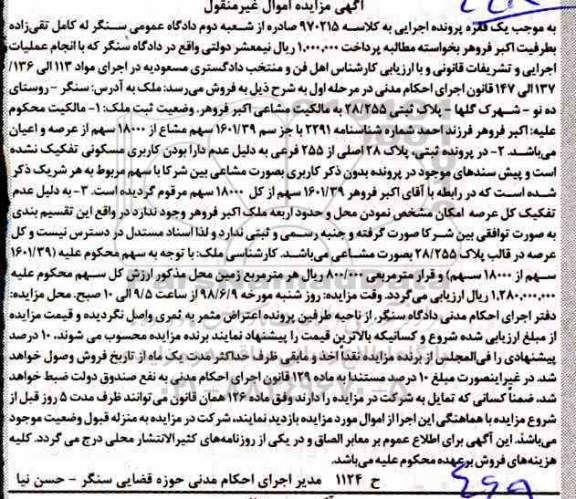 آگهی مزایده اموال غیرمنقول
به موجب یک فقره پرونده اجرایی به کلاسه ۹۷۰۲۱۵ صادره از شعبه دوم دادگاه عمومی سنگر له کامل تقی‌زاده
بطرفیت اکبر فروهر بخواسته مطالبه پرداخت ۱٬۰۰۰٬۰۰۰ ریال نیمعشر دولتی واقع در دادگاه سنگر که با انجام عملیات
اجرایی و تشریفات قانونی و با ارزیابی کارشناس اهل فن و منتخب دادگستری مسعودیه در اجرای مواد ۱۱۳ الی ۱۳۶/
۱۳۷ الی ۱۴۷ قانون اجرای احکام مدنی در مرحله اول به شرح ذیل به فروش می‌رسد: ملک به آدرس: سنگر - روستای
ده نو - شهرک گلها - پلاک ثبتی ۲۸/۲۵۵ به مالکیت مشاعی اکبر فروهر. وضعیت ثبت ملک: ۱- مالکیت محکوم
علیه: اکبر فروهر فرزند احمد شماره شناسنامه ۲۲۹۱ با جز سم ۱۶۰۱/۳۹ سهم مشاع از ۱۸۰۰۰ سهم از عرصه و اعیان
می‌باشد. ۲- در پرونده ثبتی، پلاک ۲۸ اصلی از ۲۵۵ فرعی به دلیل عدم دارا بودن کاربری مسکونی تفکیک نشده
است و پیش سندهای موجود در پرونده بدون ذکر کاربری بصورت مشاعی بین شرکا با سهم مربوط به هر شریک ذکر
شده است که در رابطه با آقای اکبر فروهر ۱۶۰۱/۳۹ سهم از کل ۱۸۰۰۰ سهم مرقوم گردیده است. ۳- به دلیل عدم
تفکیک کل عرصه امکان مشخص نمودن محل و حدود اربعه ملک اکبر فروهر وجود ندارد در واقع این تقسیم بندی
به صورت توافقی بین شرکا صورت گرفته و جنبه رسمی و ثبتی ندارد و لذا اسناد مستدل در دسترس نیست و کل
عرصه در قالب پلاک ۲۸/۲۵۵ بصورت مشاعی می‌باشد. کارشناسی ملک: با توجه به سهم محکوم علیه (۱۶۰۱/۳۹
سهم از ۱۸۰۰۰ سهم) و قرار مترمربعی ۸۰۰/۰۰۰ ریال هر مترمربع زمین محل مذکور ارزش کل سهم محکوم علیه
۱٬۲۸۰٬۰۰۰٬۰۰۰ ریال ارزیابی می‌گردد. وقت مزایده: روز شنبه مورخه ۹۸/۶/۹ از ساعت ۹/۵ الی ۱۰ صبح. محل مزایده:
دفتر اجرای احکام مدنی دادگاه سنگر. از ناحیه طرفین پرونده اعتراض مثمر به ثمری واصل نگردیده و قیمت مزایده
از مبلغ ارزیابی شده شروع و کسانیکه بالاترین قیمت را پیشنهاد نمایند برنده مزایده محسوب می شوند، ۱۰ درصد
پیشنهادی را فی‌المجلس از برنده مزایده نقداً اخذ و مابقی ظرف حداکثر مدت یک ماه از تاریخ فروش وصول خواهد
شد. در غیراینصورت مبلغ ۱۰ درصد مستنداً به ماده ۱۲۹ قانون اجرای احکام مدنی به نفع صندوق دولت ضبط خواهد
شد، ضمناً کسانی که تمایل به شرکت در مزایده را دارند وفق ماده ۱۲۶ همان قانون می‌توانند ظرف مدت ۵ روز قبل از
شروع مزایده با هماهنگی این اجرا از اموال مورد مزایده بازدید نمایند، شرکت در مزایده به منزله قبول وضعیت موجود
می‌باشد. این آگهی برای اطلاع عموم بر معابر الصاق و در یکی از روزنامه‌های کثیرالانتشار محلی درج می گردد. کلیه
هزینه‌های فروش برعهده محکوم علیه می‌باشد.
ح ۱۱۲۴ مدیر اجرای احکام مدنی حوزه قضایی سنگر - حسن نیا